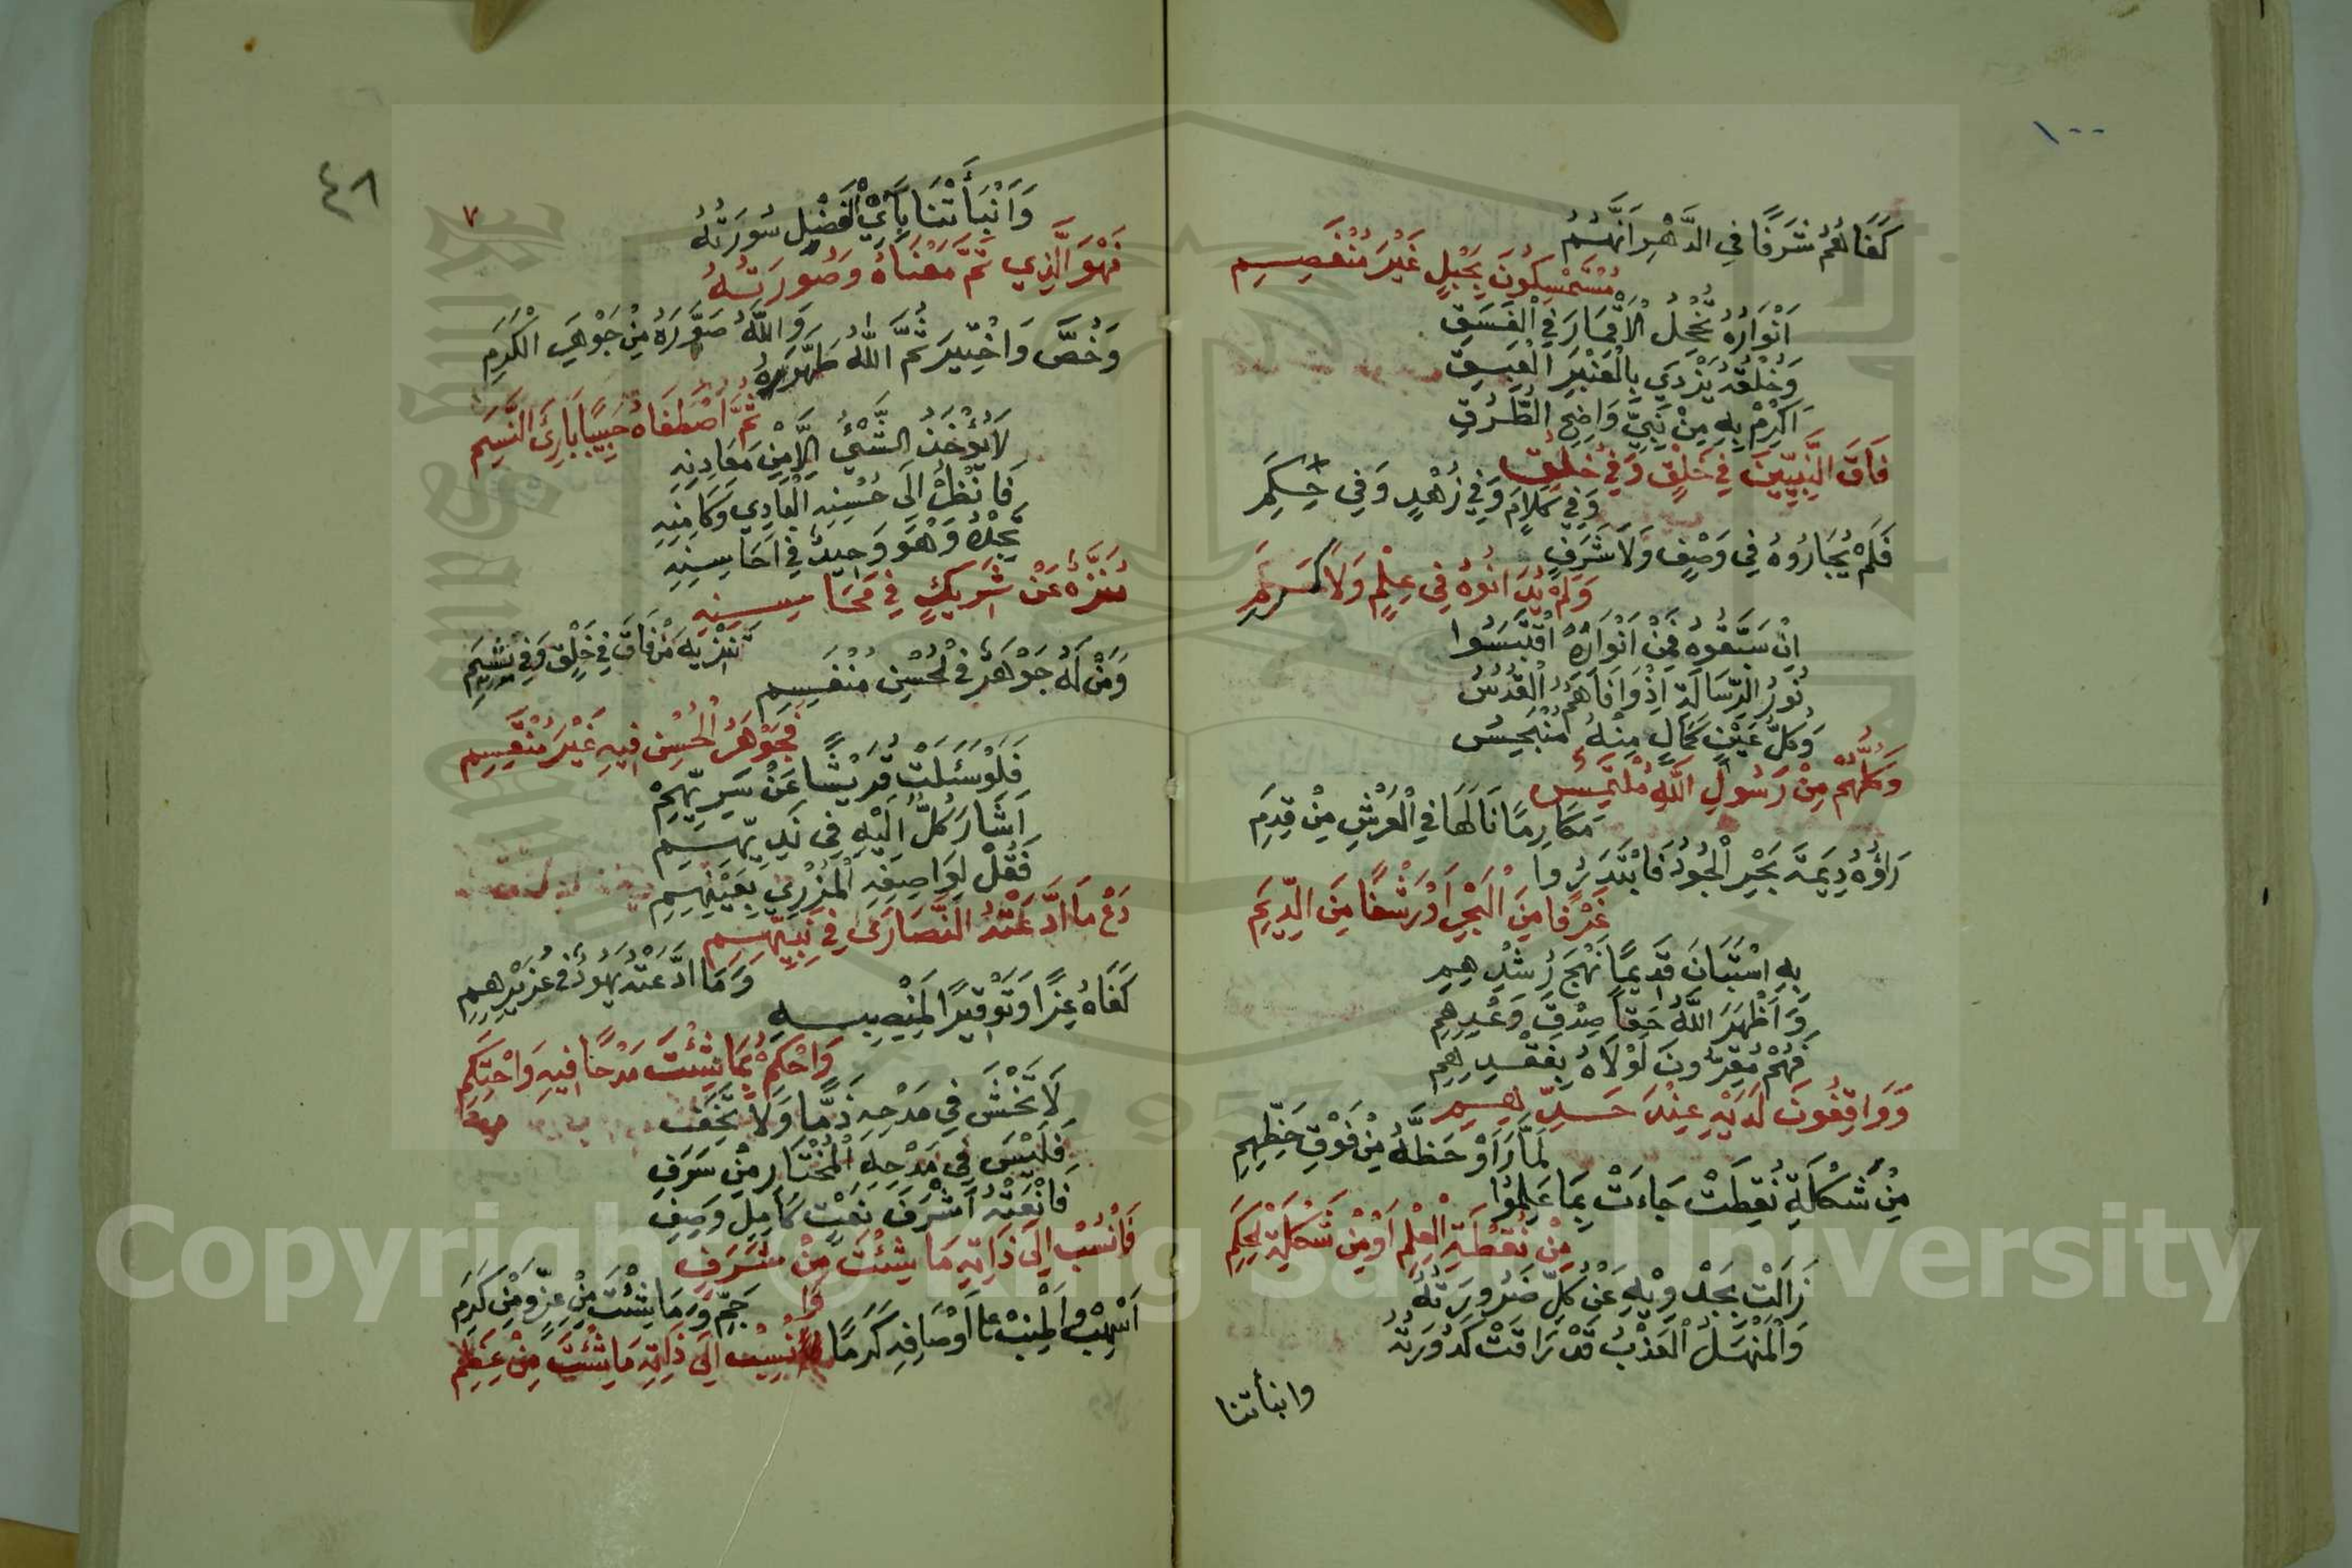 ١٠٠
كَفَاهُمُ شَرَفًا فِي الدَّهْرِ اَنَّهُمُ
مُسْتَمْسِكُونَ بِحَبْلٍ غَيْرِ مُنْفَصِمِ
اَنْوَارُهُ تُخْجِلُ الْاَقْمَارَ فِي الْغَسَقِ
وَخُلْقُهُ يَزْدَرِي بِالْعَنْبَرِ الْعَبِقِ
اَكْرِمْ بِهِ مِنْ نَبِيٍّ وَاضِحِ الطُّرُقِ
فَاقَ النَّبِيّينَ فِي خَلْقٍ وَفِي خُلُقٍ
وَفِي كَلَامٍ وَفِي زُهْدٍ وَفِي حِكَمِ
فَلَمْ يُجَارُوهُ فِي وَصْفٍ وَلَا شَرَفٍ
وَلَمْ يُدَانُوهُ فِي عِلْمٍ وَلَا كَرَمِ
اِنْ سَبَقُوهُ فَمِنْ اَنْوَارِهُ اقْتَبَسُوا
نُورُ الرِّسَالَةِ اِذْ وَافَاهُمُ الْقُدُسُ
وَكُلُّ عَيْنِ كَمَالٍ مِنْهُ مُنْبَجِسُ
وَكُلُّهُمْ مِنْ رَسُولِ اللَّهِ مُلْتَمِسٌ
مَكَارِمًا نَالَهَا فِي الْعَرْشِ مِنْ قِدَمِ
رَاَوْهُ دِيمَةَ بَحْرِ الْجُودِ فَابْتَدَرُوا
غَرْفًا مِنَ الْبَحْرِ اَوْ رَشْفًا مِنَ الدِّيَمِ
بِهِ اسْتَبَانَ قَدِيمًا نَهْجُ رُشْدِهِمِ
وَاَظْهَرَ اللَّهُ حَقًا صِدْقَ وَعْدِهِمِ
فَهُمْ مُقِرُّونَ لَوْلَاهُ بِفَقْدِهِمِ
وَوَاقِفُونَ لَدَيْهِ عِنْدَ حَدِّهِمِ
لَمَّا رَاَوْ حَظَّهُ مِنْ فَوْقِ حَظِّهِمِ
مِنْ شَكْلَةٍ نُقِطَتْ جَاءَتْ بِمَا عَلِمُوا
مِنْ نُقْطَةِ الْعِلْمِ اَوْ مِنْ شَكْلَةِ الْحِكَمِ
زَالَتْ بِجَدْوِيْهِ عَنْ كُلٍّ ضَرُورَتُهُ
وَالْمَنْهَلُ الْعَذْبُ قَدْ رَاقَتْ كَدُورَتُهُ
وانبأتنا
٤٨
٧
وَاَنْبَأَتْنَا بِآيِ الْفَضْلِ سُورَتُهُ
فَهْوَ الَّذِي تَمَّ مَعْنَاهُ وَصُورَتُهُ
وَاللَّهُ صَوَّرَهُ مِنْ جَوْهَرِ الْكَرَمِ
وَخُصَّ وَاخْتِيرَ ثُمَّ اللهُ طَهَّرَهُ
ثُمَّ اصْطَفَاهُ حَبِيبًا بَارِئُ النَّسَمِ
لَا يُؤْخَذُ الشَّيْئُ اِلَّا مِنْ مَعَادِنِهِ
فَانْظُرْ اِلَى حُسْنِهِ الْبَادِي وَكَامِنِهِ
تَجِدْهُ وَهْوَ وَحِيدٌ فِي اَحَاسِنِهِ
مُنَزَّهٌ عَنْ شَرِيكٍ فِي مَحَاسِنِهِ
تَنْزِيهَ مَنْ فَاقَ فِي خَلْقٍ وَفِي شِيَمِ
وَمَنْ لَهُ جَوْهَرٌ فِي الْحُسْنِ مُنْقَسِمِ
فَجَوْهَرُ الْحُسْنِ فِيهِ غَيْرُ مُنْقَسِمِ
فَلَوْ سَئَلْتَ قُرَيْشًا عَنْ سَرِيِّهِمْ
اَشَارَ كُلٌّ اِلَيْهِ فِي نَدِيِّهِمِ
فَقُلْ لِوَاصِفِهِ الْمُزْرِي بِعَيْنِهِمِ
دَعْ مَا ادَّعَتْهُ النَّصَارَى فِي نَبِيِّهِمِ
وَمَا ادَّعَتْهُ يَهُودٌ فِي عُزَيْرِهِمِ
كَفَاهُ عِزًّا وَتَوْقِيرًا لِمَنْصِبِهِ
وَاحْكُمْ بِمَا شِئْتَ مَدْحًا فِيهِ وَاحْتَكِمِ
لَا تَخْشَ فِي مَدْحِهِ ذَمًّا وَلَا تَخَفِ
فَلَيْسَ فِي مَدْحِهِ الْمُخْتَارِ مِنْ سَرَفِ
فَانْعَتْهُ اَشْرَفَ نَعْتٍ كَامِلٍ وَصِفِ
فَانْسُبْ اِلَى ذَاتِهِ مَا شِئْتَ مِنْ شَرَفِ
جَمٍّ وَمَا شِئْتَ مِنْ عِزٍّ وَمِنْ كَرَمِ
اَسْهِبْ وَاَطْنِبْ بِمَا اَوْصَافِهِ كَرَمًا
وَانْسُبْ اِلَى ذَاتِهِ مَا شِئْتَ مِنْ عِظَمِ